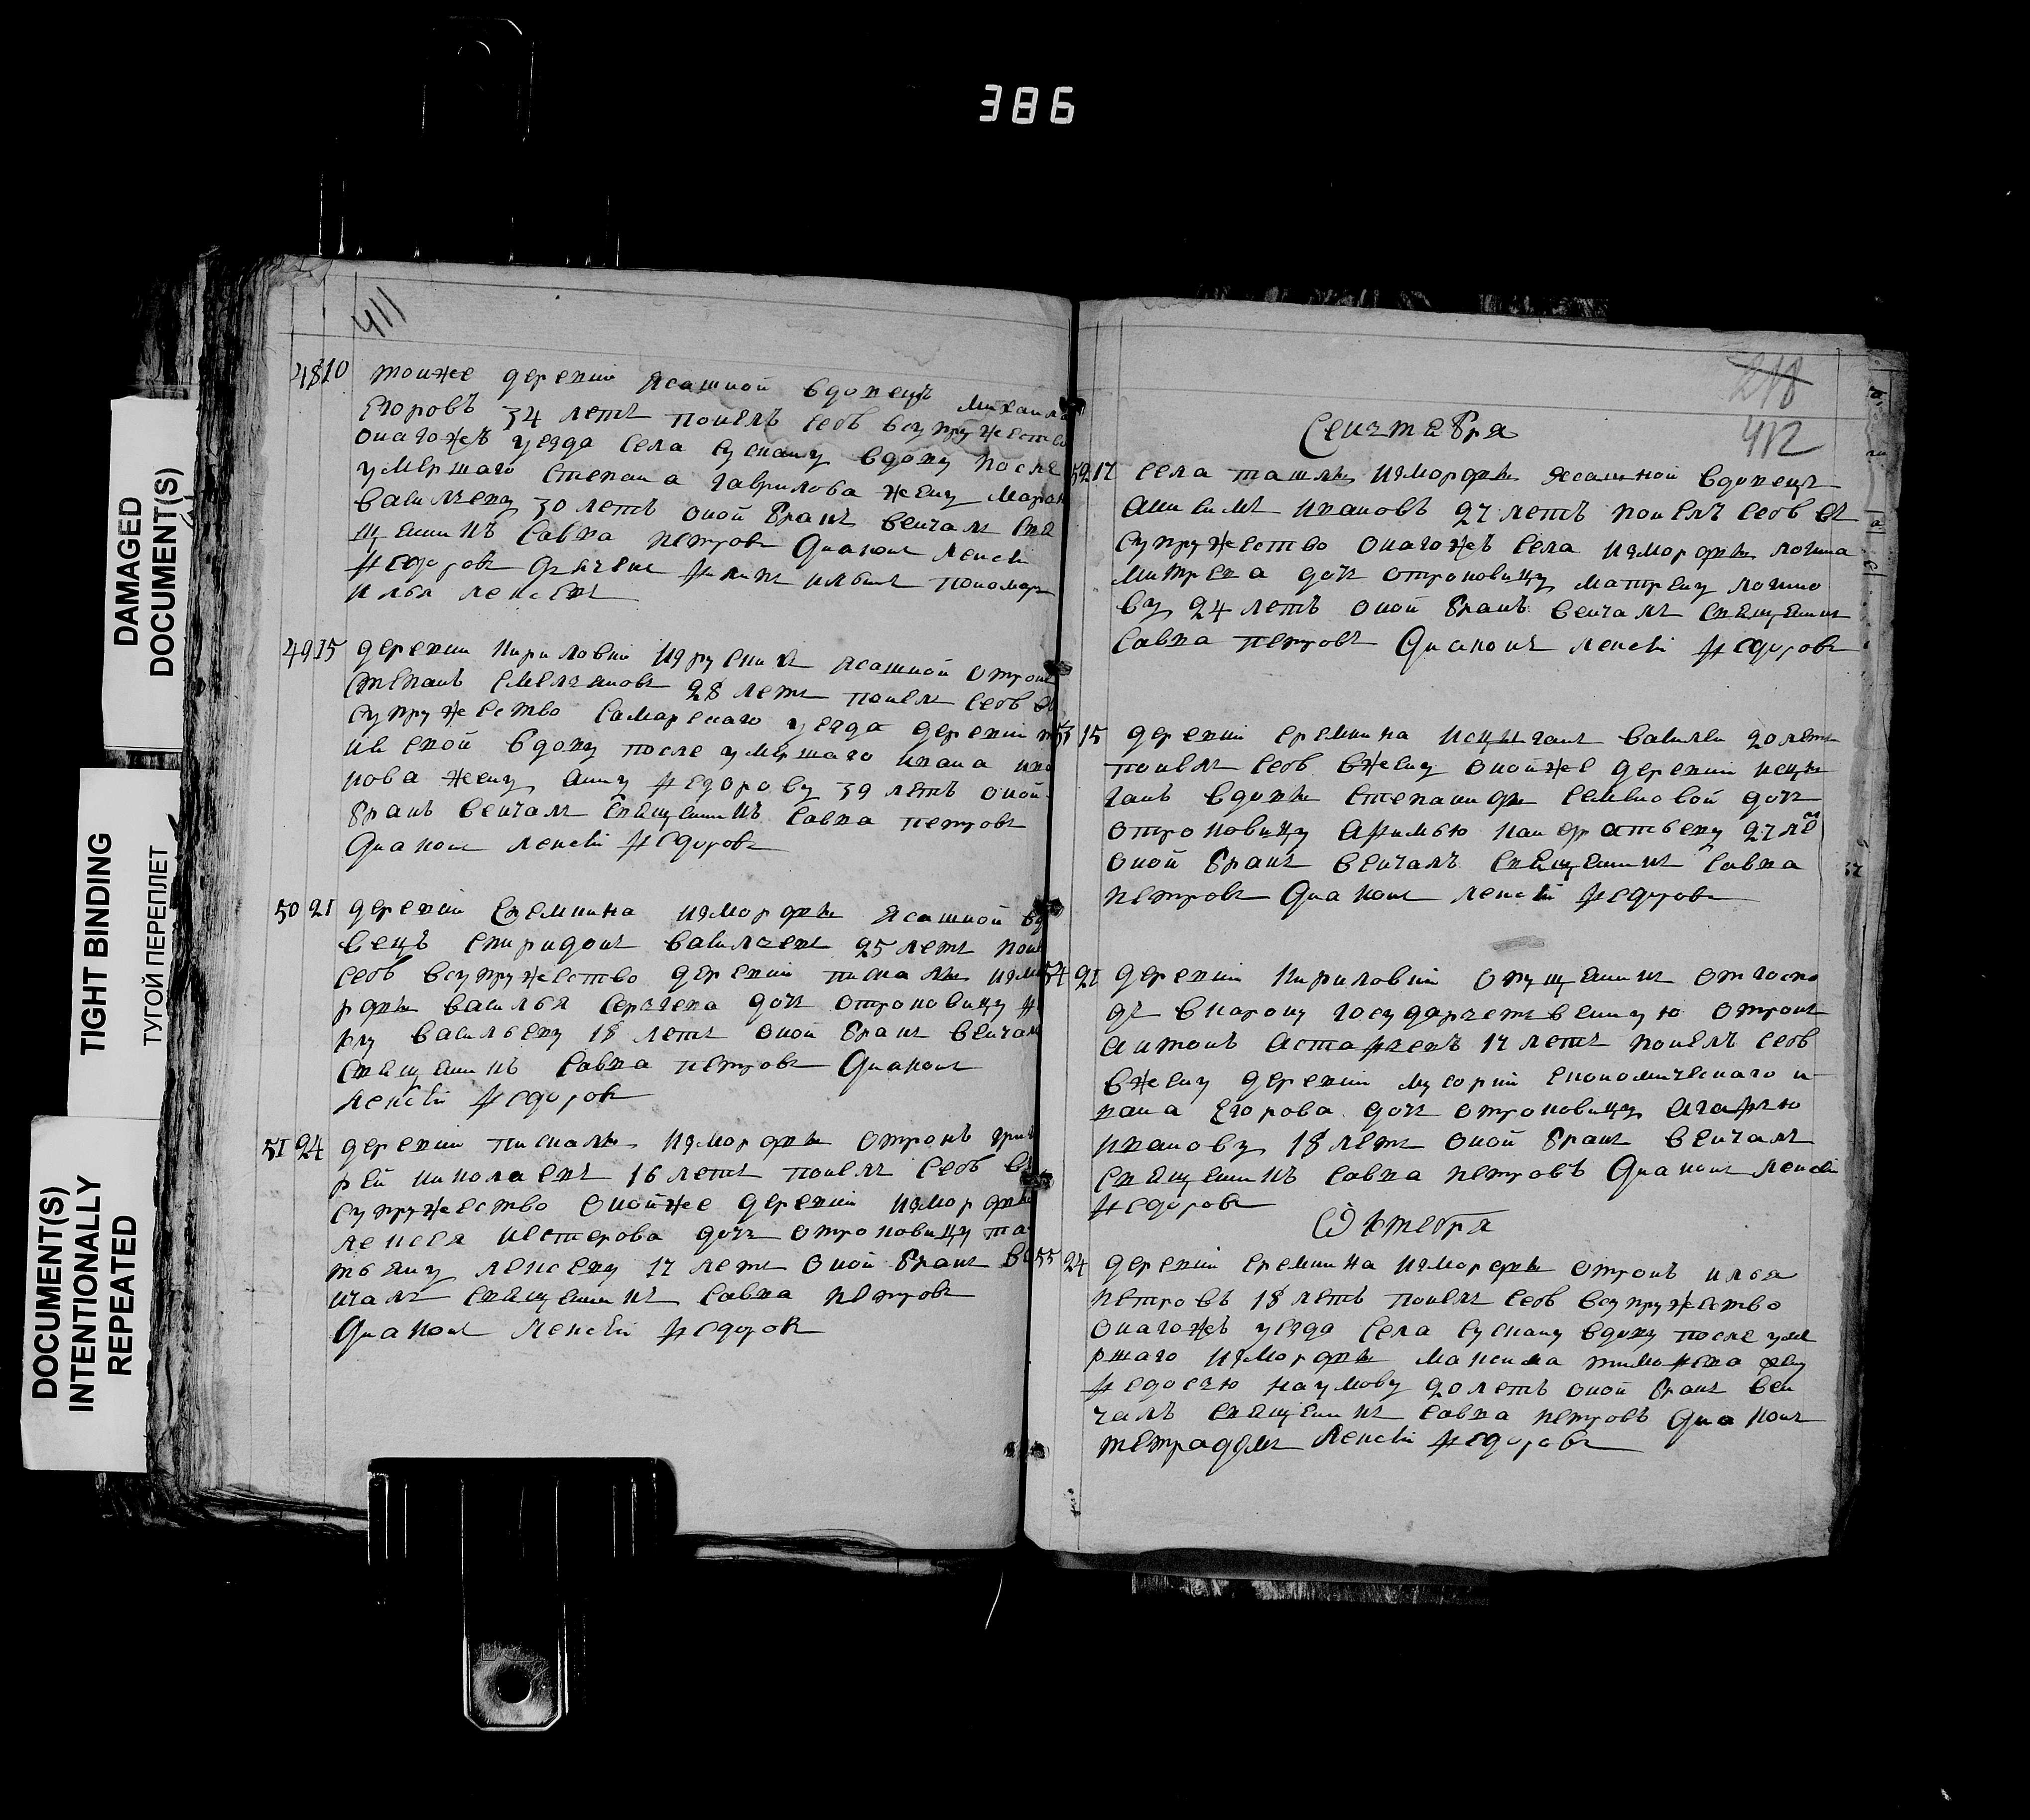 386
DAMAGED
DOCUMENT(S)
TIGHT BINDING
ТУГОЙ ПЕРЕПЛЕТ
DOCUMENT(S)
INTENTIONALLY
REPEATED
411
48 10 тоиже деревни ясашной вдовецъ Михаила
Егоровъ 34 летъ поиелъ себѣ всупружество
онагожъ уезда села сускану вдову после
умершаго степана гаврилова жену
василеву 30 летъ оной бракъ венчалъ свя
щенникъ савва петровъ диаконъ алексѣй
федоровъ дьячекъ филипъ ильинъ пономарь
илья алексѣевъ
49 15 деревни кириловки изрусскихъ ясашной отрокъ
степанъ емельяновъ 28 летъ поиелъ себѣ въ
супружество самарскаго уезда деревни
вдову после умершаго ивана ива
нова жену анну федорову 39 летъ оной
бракъ венчалъ священникъ савва петровъ
диаконъ алексѣй федоровъ
50 21 деревни еремкина измордвы ясашной вдо
вецъ спиридонъ васильевъ 25 летъ поиелъ
себѣ всупружество деревни пискалы измо
рдвы василья сергѣева дочь отроковицу
васильеву 18 летъ оной бракъ венчалъ
священникъ савва петровъ диаконъ
алексѣй федоровъ
51 24 деревни пискалы измордвы отрокъ григо
рей николаевъ 16 летъ поиелъ себѣ въ
супружество онойже деревни измордвы
алексея нестерова дочь отроковицу та
тьяну алексеву 17 летъ оной бракъ вен
чалъ священникъ савва петровъ
диаконъ алексѣй федоровъ
218
412
Сентября
52 17 села ташлы измордвы ясашной вдовецъ
анисимъ ивановъ 27 летъ поиелъ себѣ въ
супружество онагожъ села измордвы логина
митрева дочь отроковицу матрену логино
ву 24 летъ оной бракъ венчалъ священникъ
савва петровъ диаконъ алексѣй федоровъ
53 15 деревни еремкина василеи 20 летъ
поиелъ себѣ вжену онойже деревни
вдовы степаниды семеновой дочь
отроковицу афимью кандратьеву 27 ле
оной бракъ венчалъ священникъ савва
петровъ диаконъ алексѣй федоровъ
54 21 деревни кириловки отпущенникъ отгоспо
дъ вказону государственную отрокъ
антонъ астафьевъ 17 летъ поиелъ себѣ
вжену деревни мусорки економическаго и
вана егорова дочь отроковицу агафью
иванову 18 летъ оной бракъ венчалъ
священникъ савва петровъ диаконъ алексѣй
федоровъ
Октебря
55 24 деревни еремкина измордвы отрокъ илья
петровъ 18 летъ поиелъ себѣ всупружество
онагожъ уезда села сускану вдову после уме
ршаго измордвы максима тимофева жену
федосью наумову 20 летъ оной бракъ вен
чалъ священникъ савва петровъ диаконъ
алексѣй федоровъ